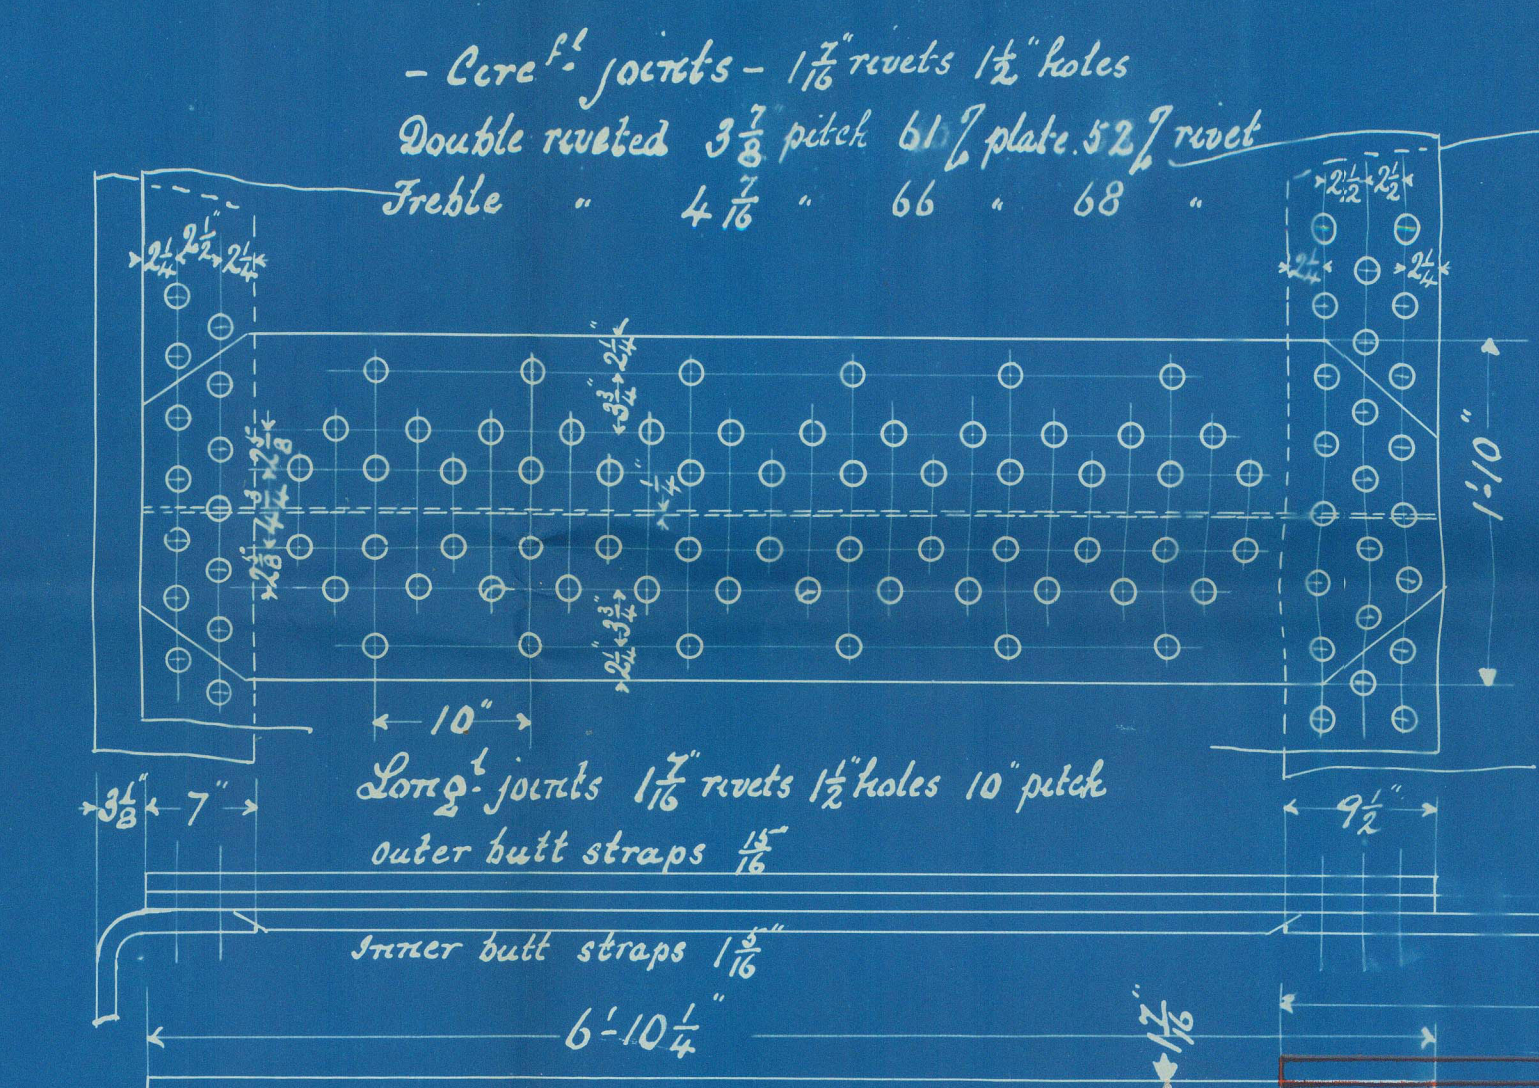 - Circ.fl joints - 1 7/16" rivets 1 1/2" holes
Double riveted 3 7/8 pitch 61 % plate. 52 % rivet
Treble " 4 7/16 " 66 " 68 "
2 1/4 2 1/2" 2 1/4
2 1/2 2 1/2
2 1/4 2 1/4
2 1/4" 3 3/4"
1/4"
2 1/4" 3 3/4"
1'-10"
10"
Longl. joints 1 7/16" rivets 1 1/2" holes 10" pitch
outer butt straps 15/16"
3 1/8" 7"
9 1/2"
Inner butt straps 1 5/16"
6'-10 1/4"
1 7/16"